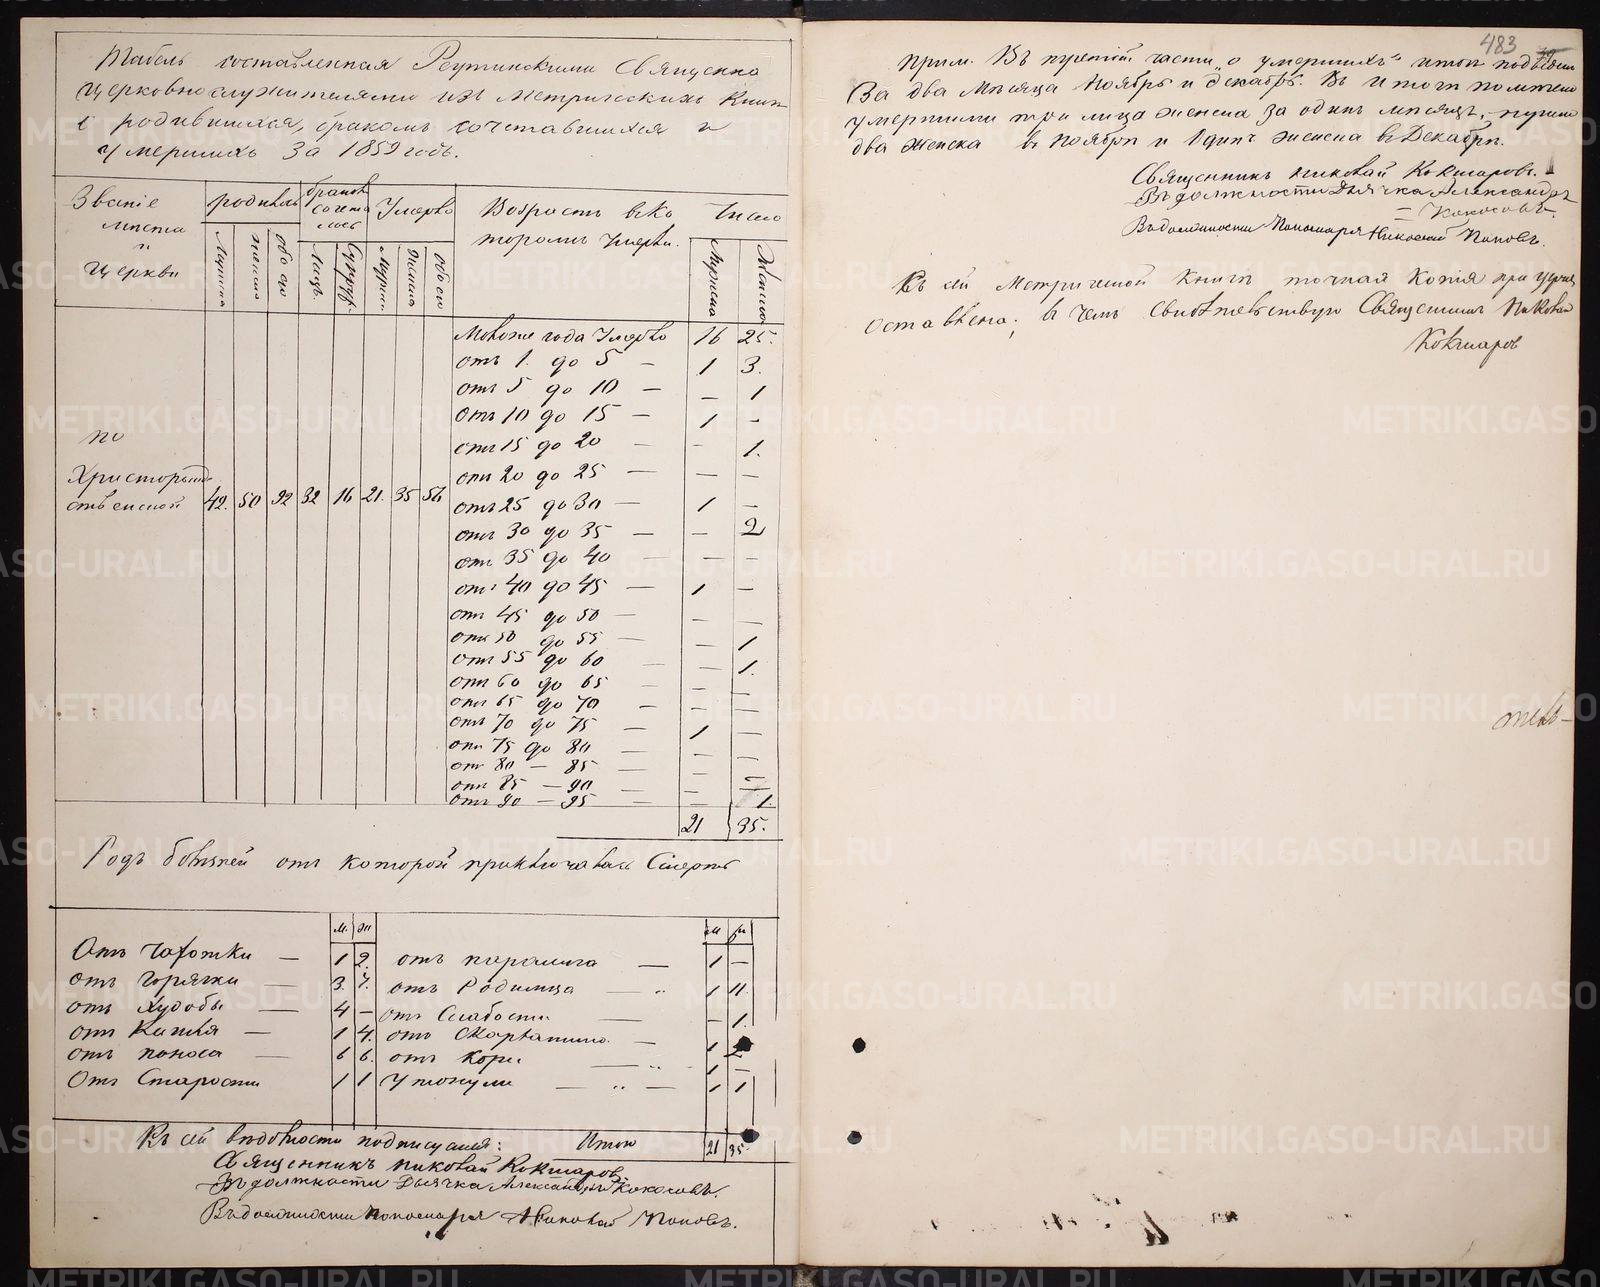 Табель составленная Реутинскими Священно
церковнослужителями изъ метрическихъ книгъ
о родившихся, бракомъ сочетавшихся и
умершихъ за 1859 годъ.
Званіе места и Церкви
родилось
бракомъ сочеталось
Умерло
Возрастъ въ которомъ умерли.
Число
Мужска
женска
обоего
Лицъ
Супруж.
мужска
женска
обоего
Мужска
Женска
по Христорождественской
42. 50 92 32 16 21. 35 56
Моложе года Умерло 16 25.
отъ 1. до 5 — 1 3.
отъ 5 до 10 — — 1
отъ 10 до 15 — 1 —
отъ 15 до 20 — — 1.
отъ 20 до 25 — — —
отъ 25 до 30 — 1 —
отъ 30 до 35 — — 2
отъ 35 до 40 — — —
отъ 40 до 45 — 1 —
отъ 45 до 50 — — —
отъ 50 до 55 — — 1
отъ 55 до 60 — — 1.
отъ 60 до 65 — — —
отъ 65 до 70 — — —
отъ 70 до 75 — 1 —
отъ 75 до 80 — — —
отъ 80 — 85 — — —
отъ 85 — 90 — — —
отъ 90 — 95 — — 1.
21 35.
Родъ болезней отъ которой приключилась Смерть
м. ж м ж
Отъ чахотки — 1 2. отъ паралича — 1 —
отъ горячки — 3. 7. отъ Родимца — 1 11.
отъ худобы — 4 — отъ Слабости — — 1.
отъ Кашля — 1 4. отъ Скарлатины — 1 2
отъ поноса — 6 6. отъ кори — 1 —
Отъ Старости 1 1 Утонули — 1 1
Къ сей ведомости подписуемся: Итого 21 35.
Священникъ Николай Кокшаров
Въ должности Дьячка Александръ Кокосовъ.
Въ должности Пономаря Николай Поповъ.
483
прим. Въ третей части „о умершихъ" итогъ подведенъ
За два месяца Ноябрь и Декабрь. Въ итоге помечено
умершими три лица женска за одинъ месяцъ, —
два женска въ Ноябре и 1 динъ женска въ Декабре.
Священникъ Николай Кокшаровъ.
Въ должности Дьячка Александръ
Кокосовъ.
Въ должности Пономаря Николай Поповъ.
Къ сей Метрической книге точная копія при церкве
Оставлена; въ чемъ свидетельствую Священникъ Николай
Кокшаров
METRIKI.GASO-URAL.RU